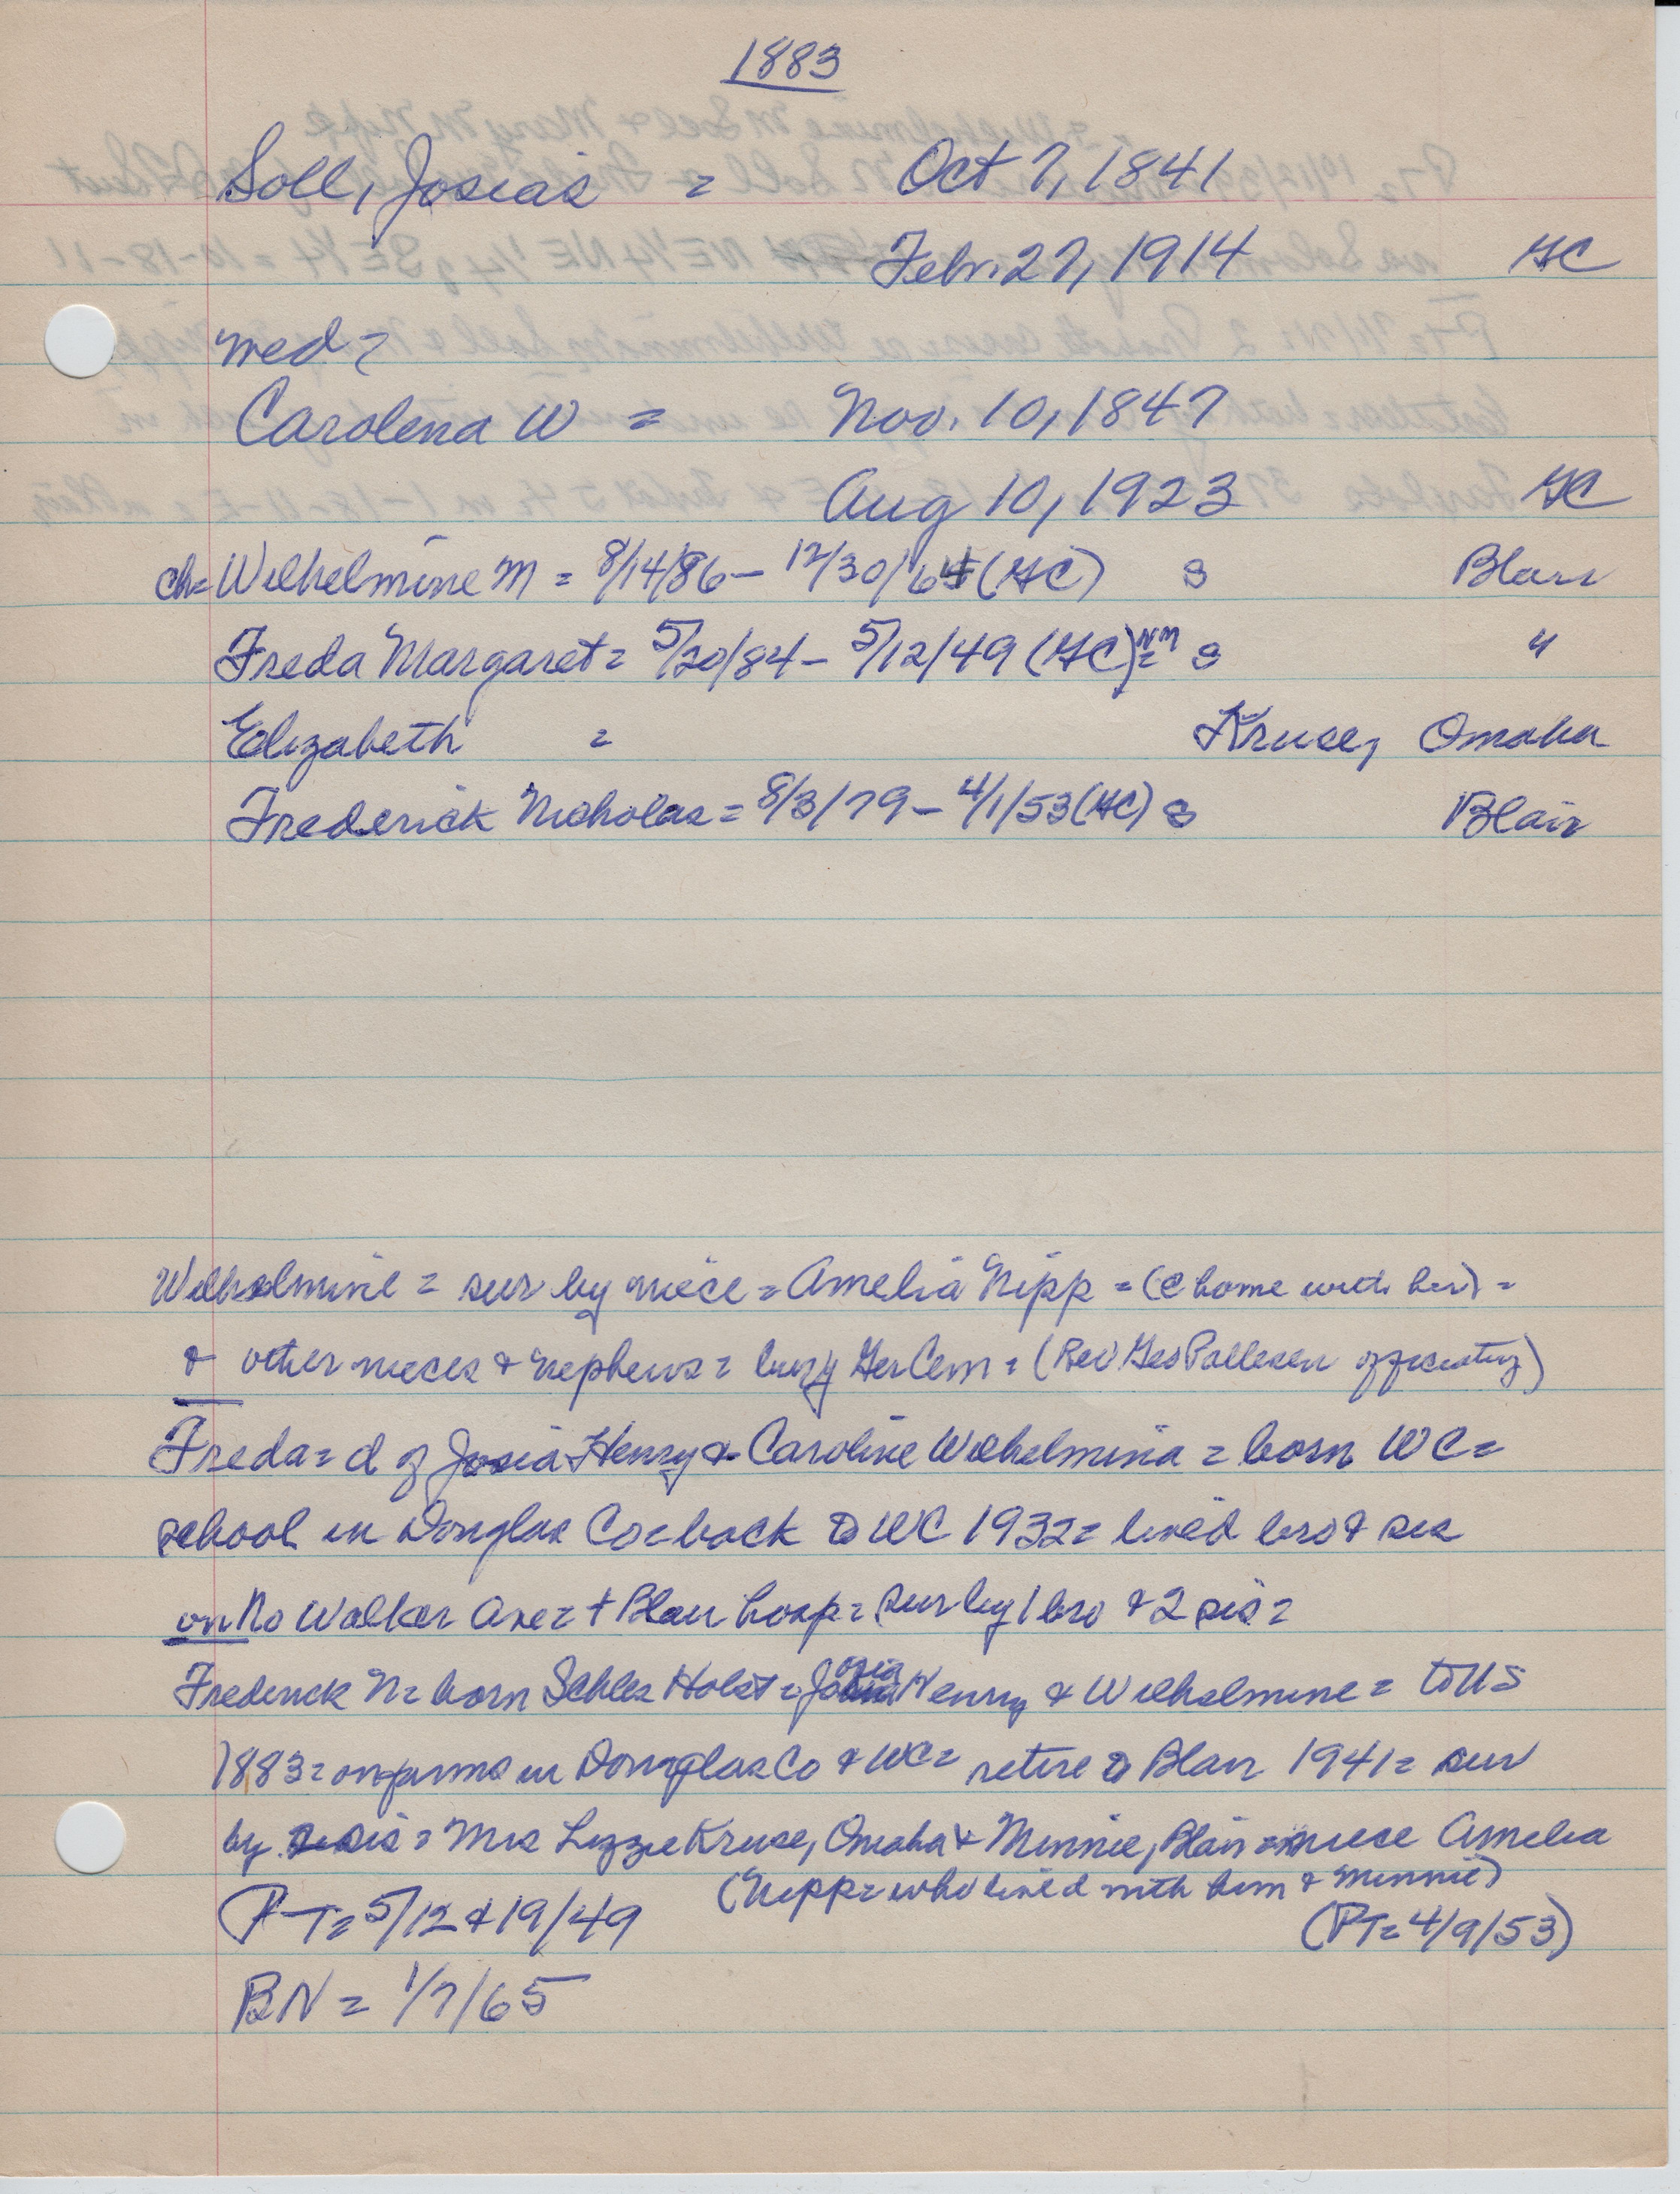 1883
Soll, Josias = Oct 7, 1841
Febr. 27, 1914 GC
med =
Carolena W = Nov. 10, 1847
Aug 10, 1923 GC
ch = Wilhelmine M = 8/14/86 - 12/30/64 (GC) s Blair
Freda Margaret = 5/20/84 - 5/12/49 (GC) NM = s "
Elizabeth = Kruse, Omaha
Frederick Nicholas = 8/3/79 - 4/1/53 (GC) s Blair
Wilhelmine = sur by niece = Amelia Nipp = (c home with her) =
& other nieces & nephews = Ger Cem = (Rev Geo Pallesen officiating)
Freda = d of Josia Henry & Caroline Wilhelmina = born WC =
school in Douglas Co = back to WC 1932 = lived bro & sis
on No Walker Ave = + Blair hosp = sur by 1 bro & 2 sis =
Frederick N = born Schles Holst = Josia Henry & Wilhelmine = to US
1883 = on farms in Douglas Co & WC = retire to Blair 1941 = sur
by sis = Mrs Lizzie Kruse, Omaha & Minnie, Blair = niece Amelia
(Nipp = who lived with him & Minnie)
PT = 5/12 & 19/49 (PT = 4/9/53)
BN = 1/7/65